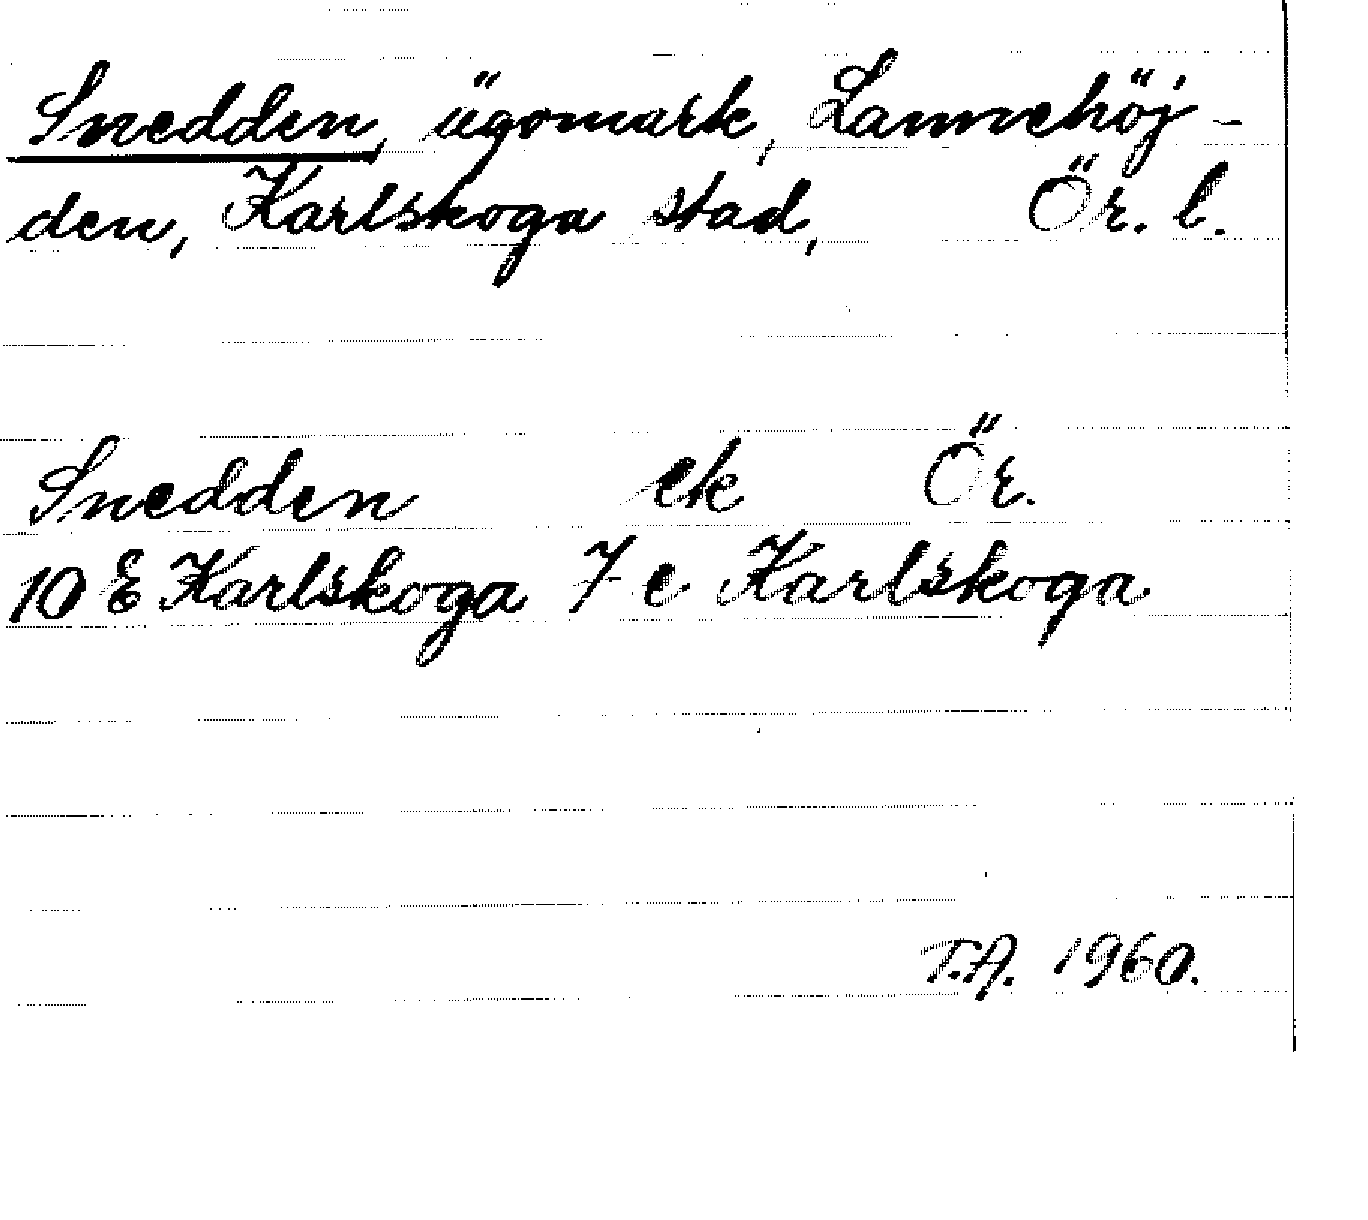 Snedden, ägomark, Lannehöj-
den, Karlskoga stad, Ör. l.
Snedden ek Ör.
10 E Karlskoga 7 e Karlskoga
T.A. 1960.